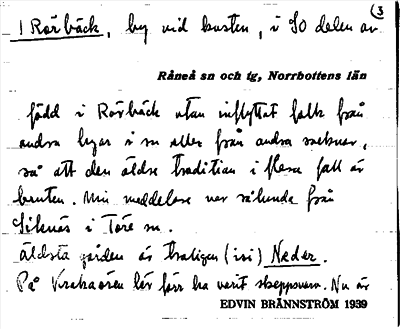 3
1 Rörbäck, by vid kusten, i SO delen av
Råneå sn och tg, Norrbottens län
född i Rörbäck utan inflyttat folk från
andra byar i sn eller från andra socknar,
så att den äldre tradition i flera fall är
bruten. Min meddelare var sålunda från
Siknäs i Töre sn.
Äldsta gården är troligen (isi) Neder.
På Vrakaören lär förr ha varit skeppsvarv. Nu är
EDVIN BRÄNNSTRÖM 1939